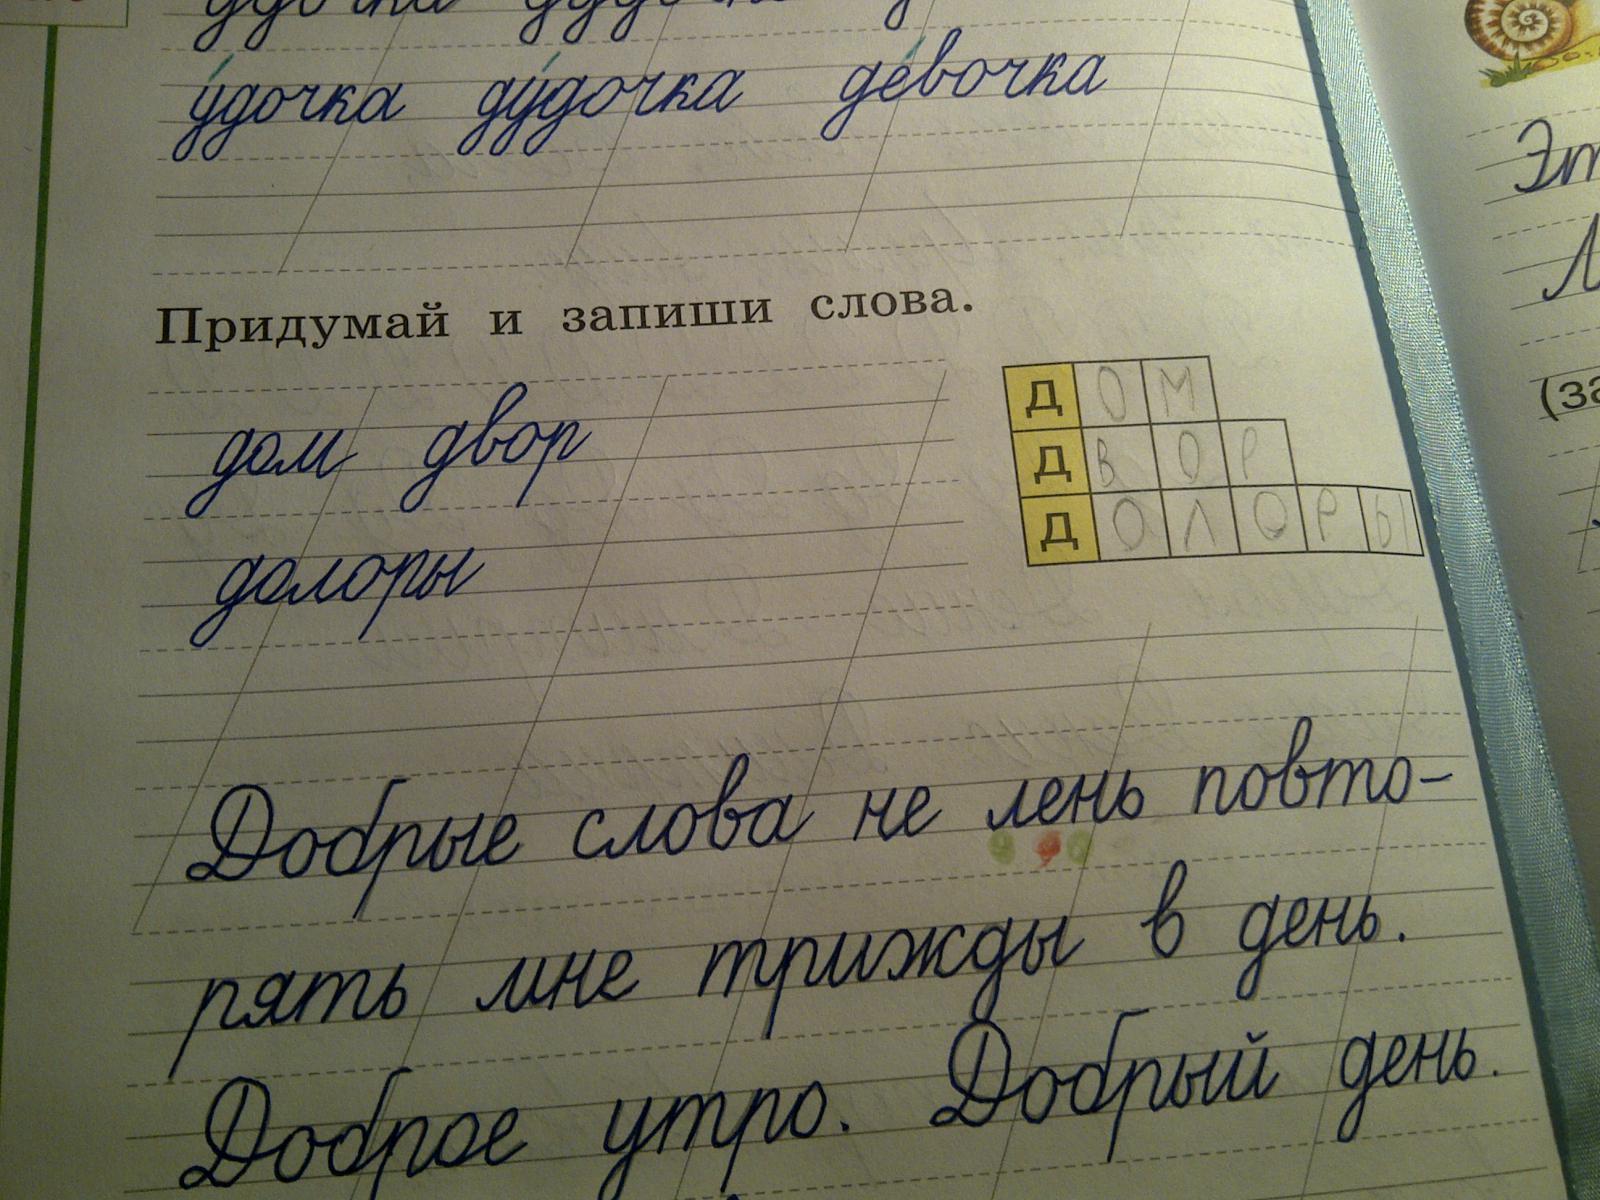 удочка ду́дочка де́вочка
Придумай и запиши слова.
дом двор
долоры
Д О М
Д В О Р
Д О Л О Р Ы
Добрые слова не лень повто-
рять мне трижды в день.
Доброе утро. Добрый день.
Эт
Л
(за